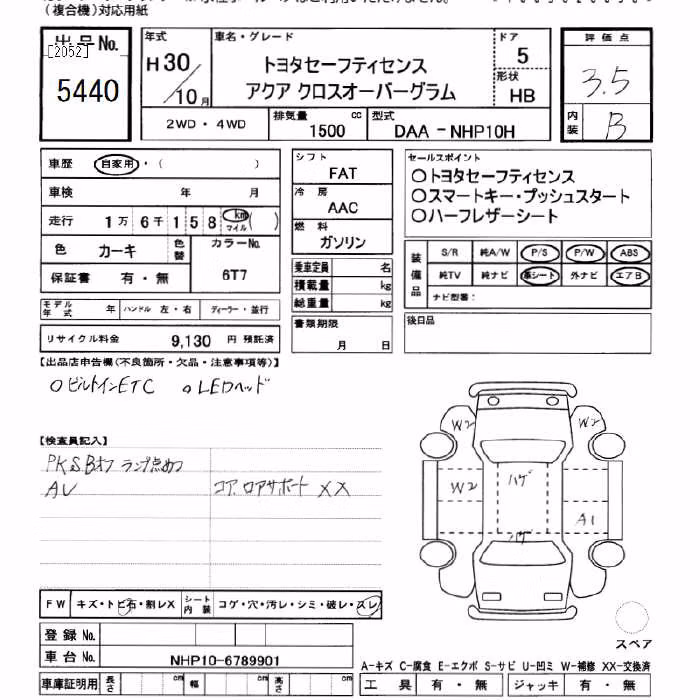 （複合機）対応用紙
出品No.
[2052]
5440
年式
H30／10月
車名・グレード
トヨタセーフティセンス
アクア クロスオーバーグラム
ドア
5
形状
HB
評価点
3.5
内装
B
2WD・4WD
排気量
1500 cc
型式
DAA－NHP10H
車歴 自家用・（ ）
車検 年 月
走行 1万6千158 km マイル（ ）
色 カーキ 色替 カラーNo.
6T7
保証書 有・無
モデル年式 年 ハンドル 左・右 ディーラー・並行
リサイクル料金 9,130 円 預託済
シフト
FAT
冷房
AAC
燃料
ガソリン
乗車定員 名
積載量 kg
総重量 kg
書類期限
月 日
セールスポイント
〇トヨタセーフティセンス
〇スマートキー・プッシュスタート
〇ハーフレザーシート
装備品
S/R 純A/W P/S P/W ABS
純TV 純ナビ 革シート 外ナビ エアB
ナビ型番：
後日品
【出品店申告欄(不良箇所・欠品・注意事項等)】
○ビルトインETC ○LEDヘッド
【検査員記入】
PKSBオフ ランプ点めつ
AV コア.ロアサポート XX
W2 W2
W2 ハゲ
A1
ハゲ
FW キズ・トビ石・割レX シート内装 コゲ・穴・汚レ・シミ・破レ・スレ
登録No.
車台No. NHP10-6789901
車庫証明用 長さ cm 幅 cm 高さ cm
スペア
A-キズ C-腐食 E-エクボ S-サビ U-凹ミ W-補修 XX-交換済
工具 有・無 ジャッキ 有・無